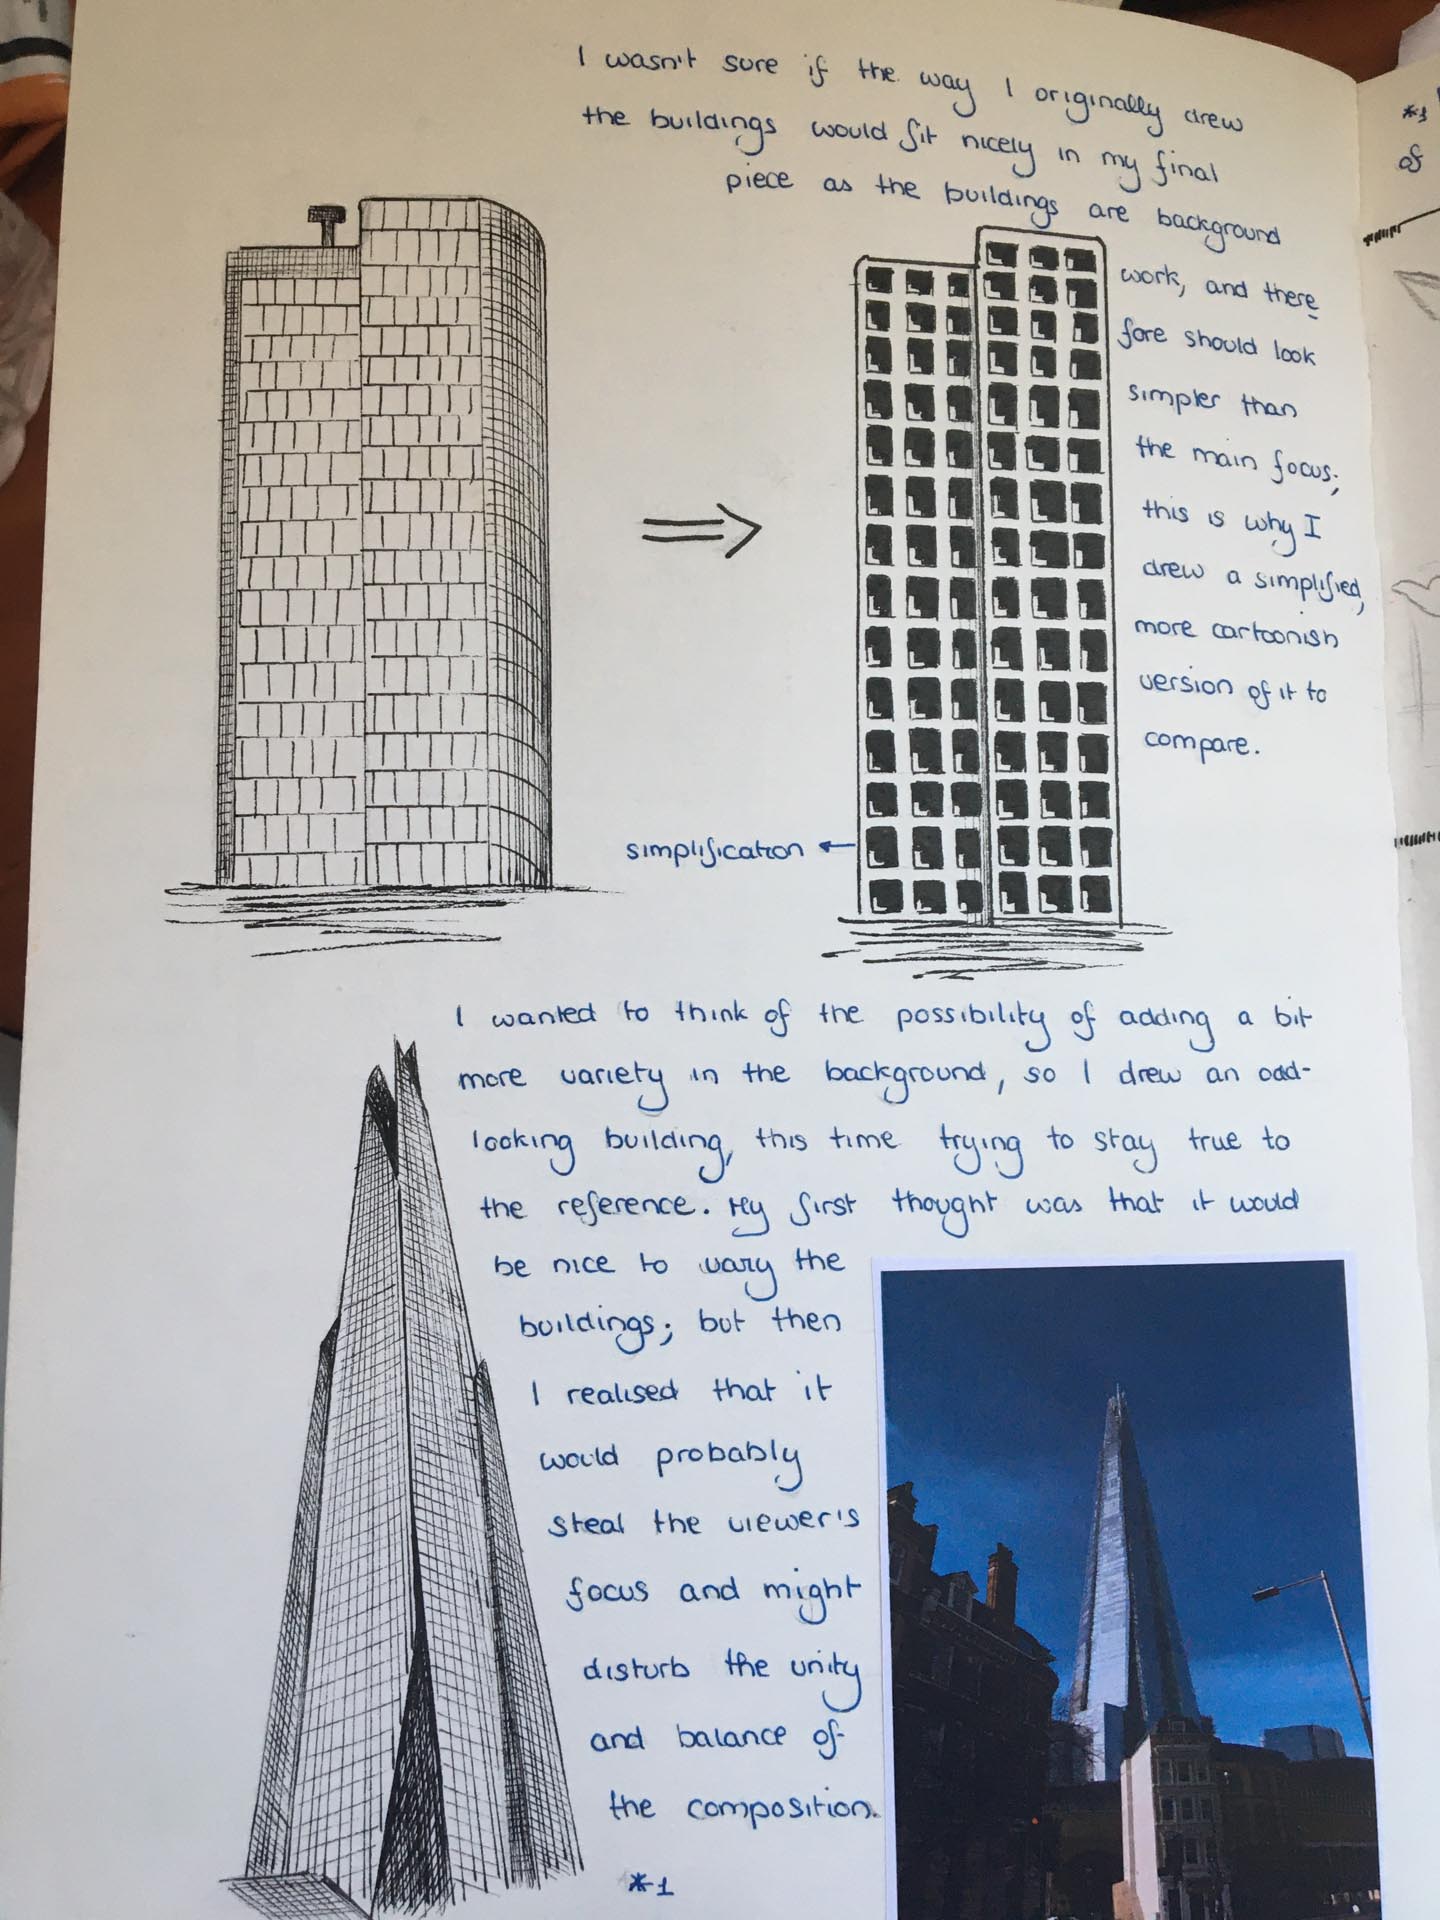 I wasn't sure if the way I originally drew
the buildings would fit nicely in my final
piece as the buildings are background
work, and there
fore should look
simpler than
the main focus;
this is why I
drew a simplified,
more cartoonish
version of it to
compare.
simplification
I wanted to think of the possibility of adding a bit
more variety in the background, so I drew an odd-
looking building, this time trying to stay true to
the reference. My first thought was that it would
be nice to vary the
buildings; but then
I realised that it
would probably
steal the viewer's
focus and might
disturb the unity
and balance of
the composition.
*1
*1
of